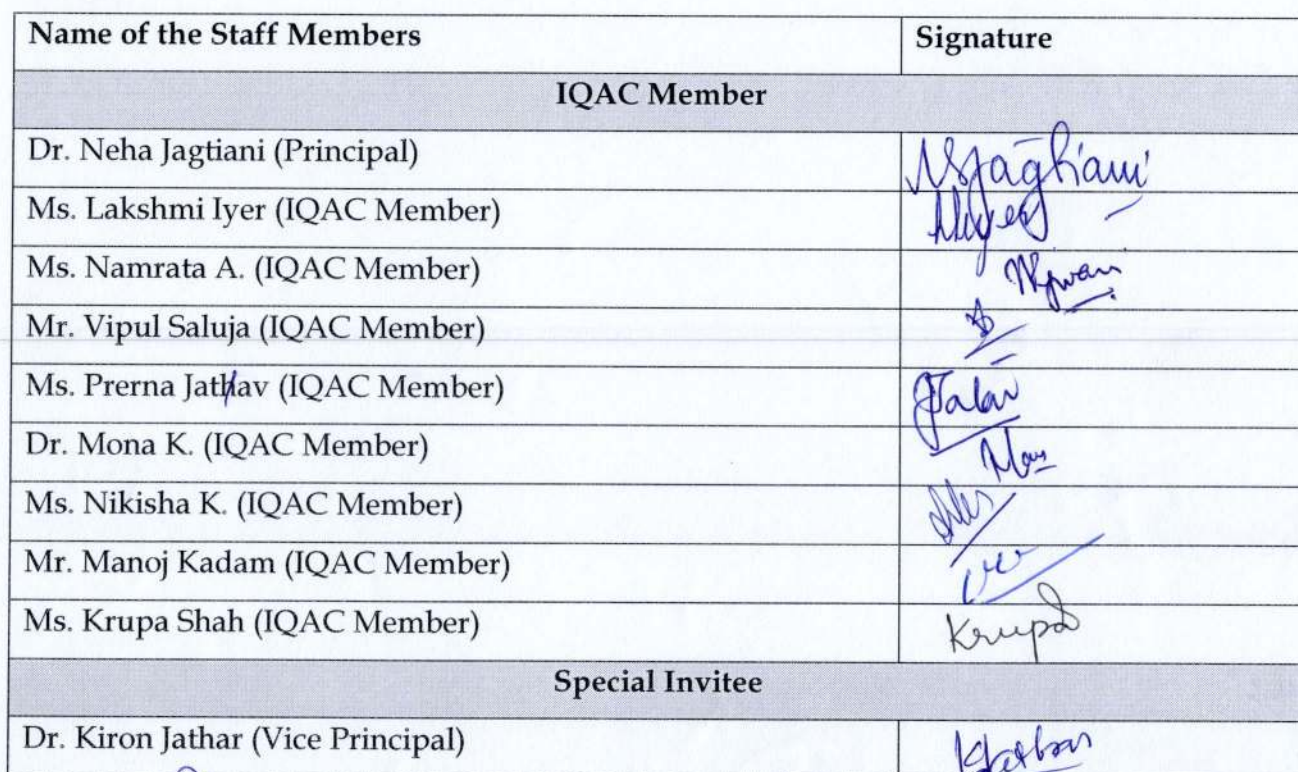 Name of the Staff Members Signature
IQAC Member
Dr. Neha Jagtiani (Principal) NSJagtiani
Ms. Lakshmi Iyer (IQAC Member)
Ms. Namrata A. (IQAC Member)
Mr. Vipul Saluja (IQAC Member)
Ms. Prerna Jathav (IQAC Member)
Dr. Mona K. (IQAC Member)
Ms. Nikisha K. (IQAC Member)
Mr. Manoj Kadam (IQAC Member)
Ms. Krupa Shah (IQAC Member) KrupaS
Special Invitee
Dr. Kiron Jathar (Vice Principal) KJathar